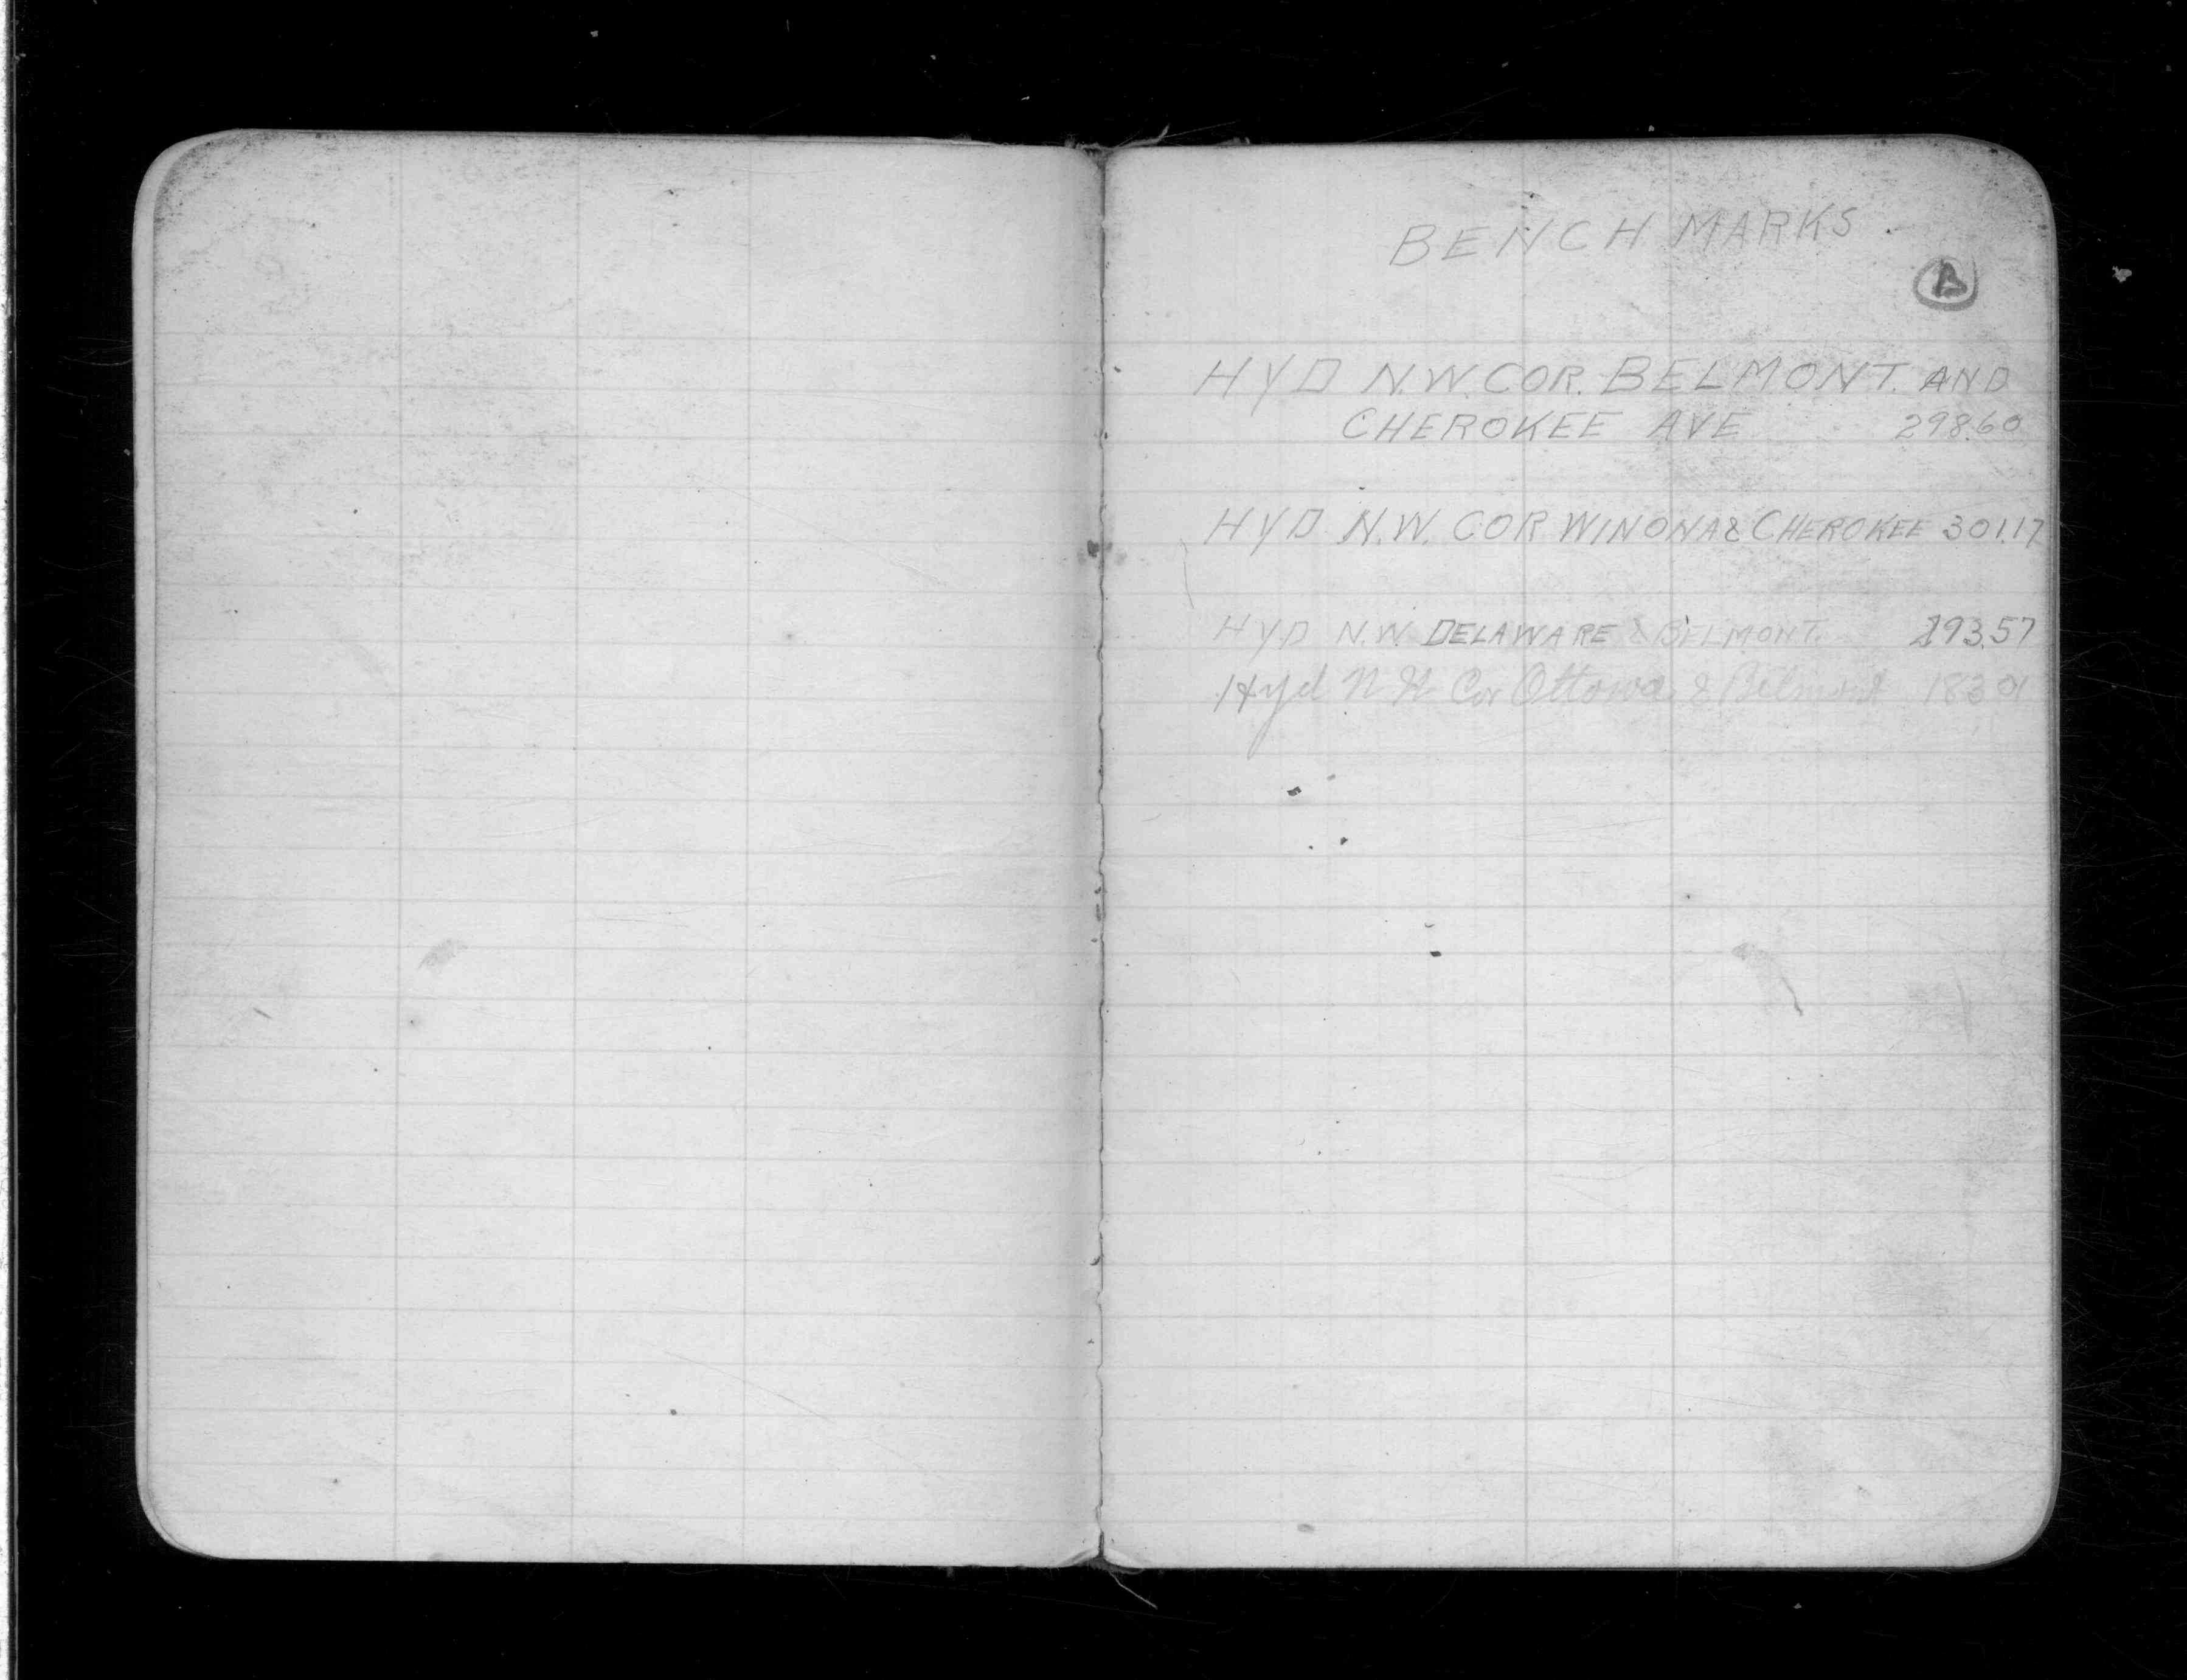 BENCH MARKS
B
HYD N.W. COR. BELMONT. AND
CHEROKEE AVE 298.60
HYD N.W. COR WINONA & CHEROKEE 301.17
HYD N.W. DELAWARE & BELMONT. 293.57
Hyd N W Cor Ottowa & Belmont 183.01